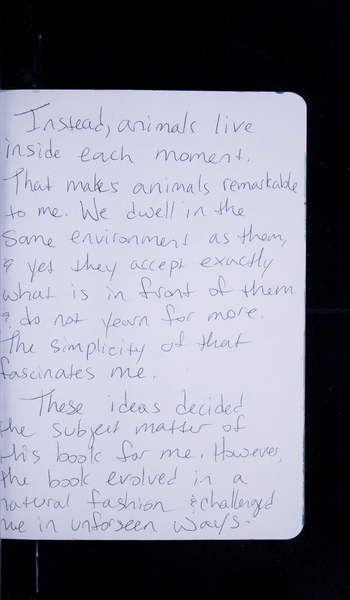 Instead, animals live
inside each moment.
That makes animals remarkable
to me. We dwell in the
same environment as them,
& yet they accept exactly
what is in front of them
& do not yearn for more.
The simplicity of that
fascinates me.
These ideas decided
the subject matter of
this book for me. However,
the book evolved in a
natural fashion & challenged
me in unforseen ways.